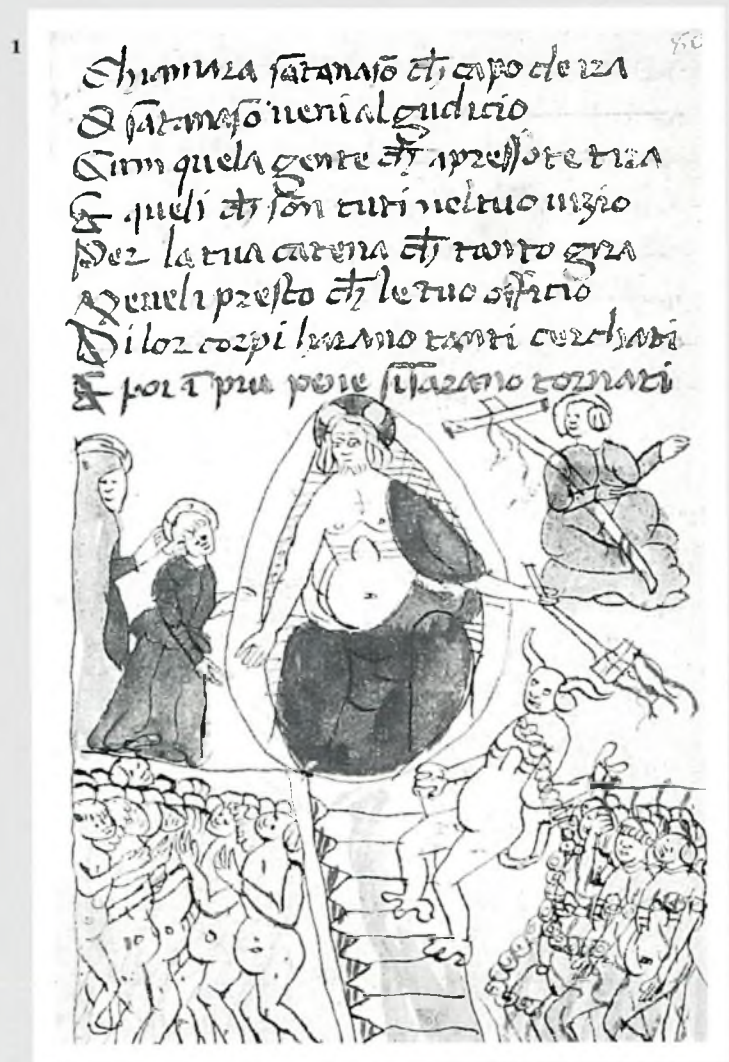 1
80
Chiamara satanaso ch capo dera
O satanaso ueni al gudicio
Cum quela gente ch apresso te tira
E queli ch son tuti nel tuo uizio
Per la tua catena ch tanto gira
Veneli presto ch le tuo
Di lor corpi tanti cerchati
E poi i piu pene sarano tornati